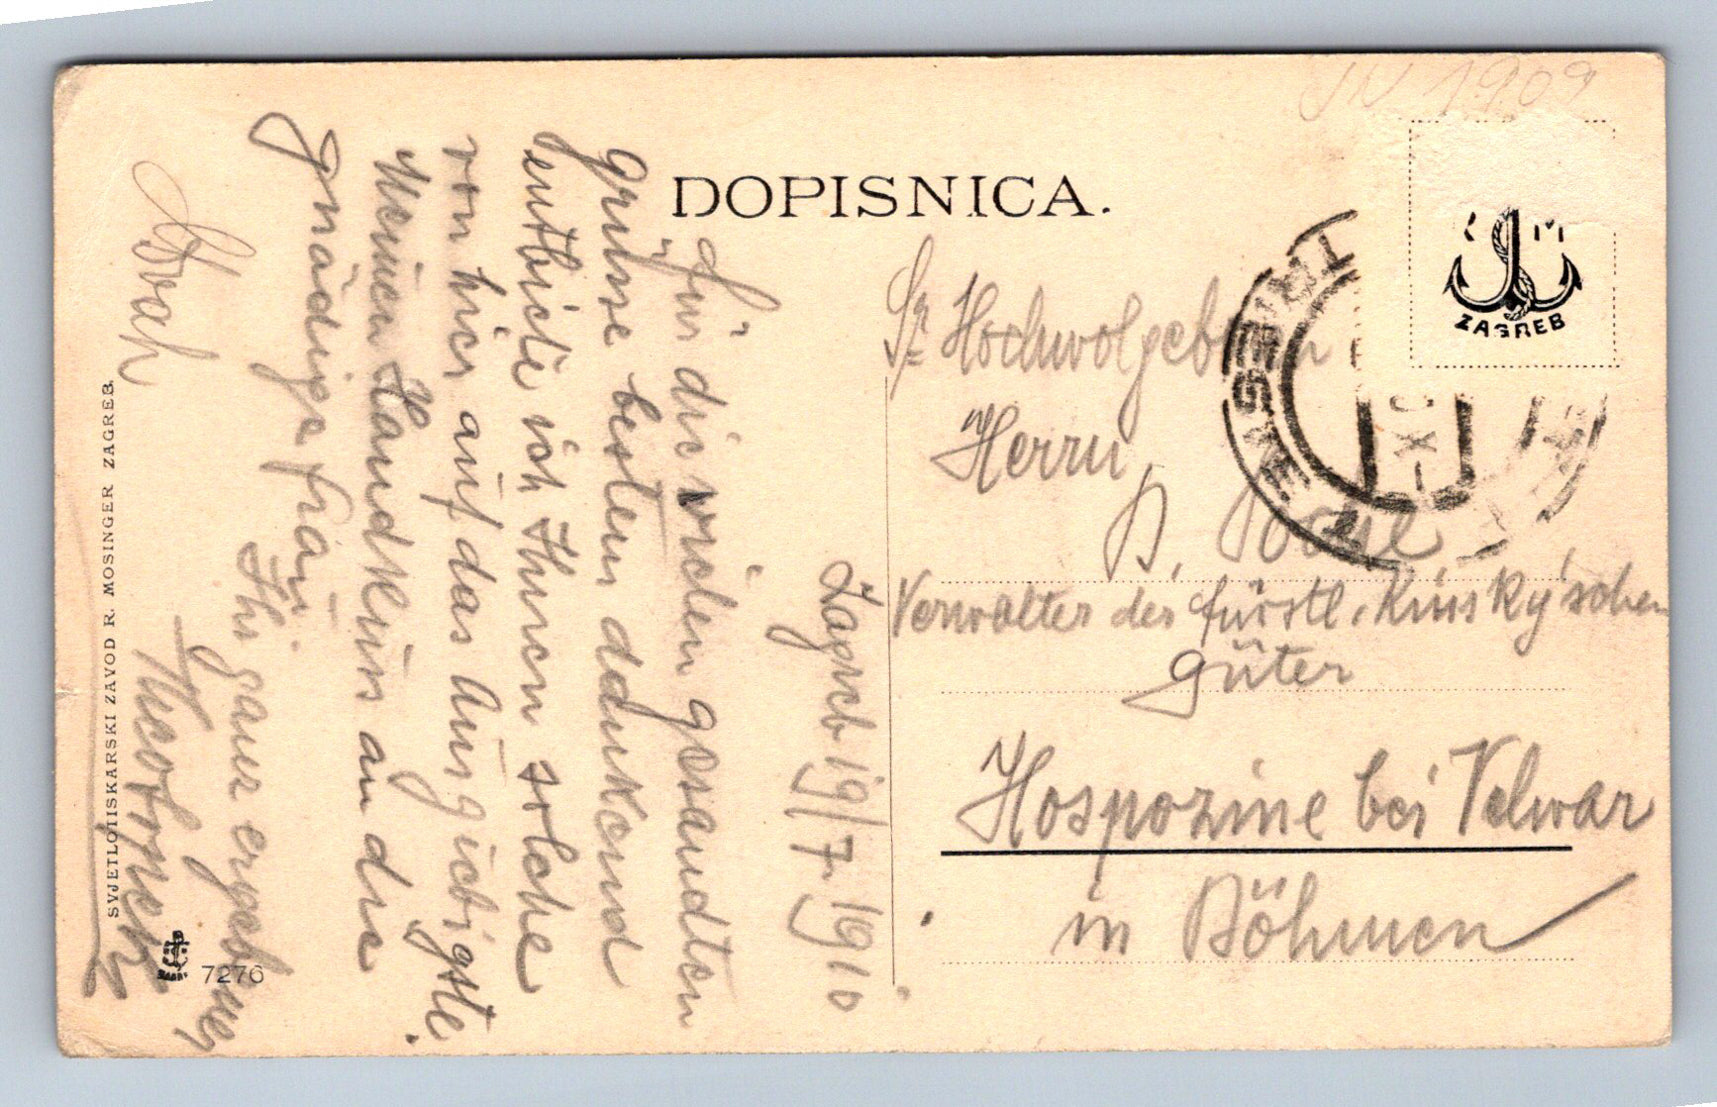 IV 1909
DOPISNICA.
R M
ZAGREB
Zagreb 19/7. 1910
Für die vielen gesandten
Grüsse bestens dankend
entbiete ich Ihnen solche
von hier auf das Ausgiebigste.
Meinen Handkuss an die
gnädige Frau.
Ihr ganz ergebner
Sr Hochwolgeboren
Herrn
Verwalter der fürstl. Kinsky'schen
Güter
Hospozine bei Velwar
in Böhmen
SVJETLOTISKARSKI ZAVOD R. MOSINGER ZAGREB.
7276